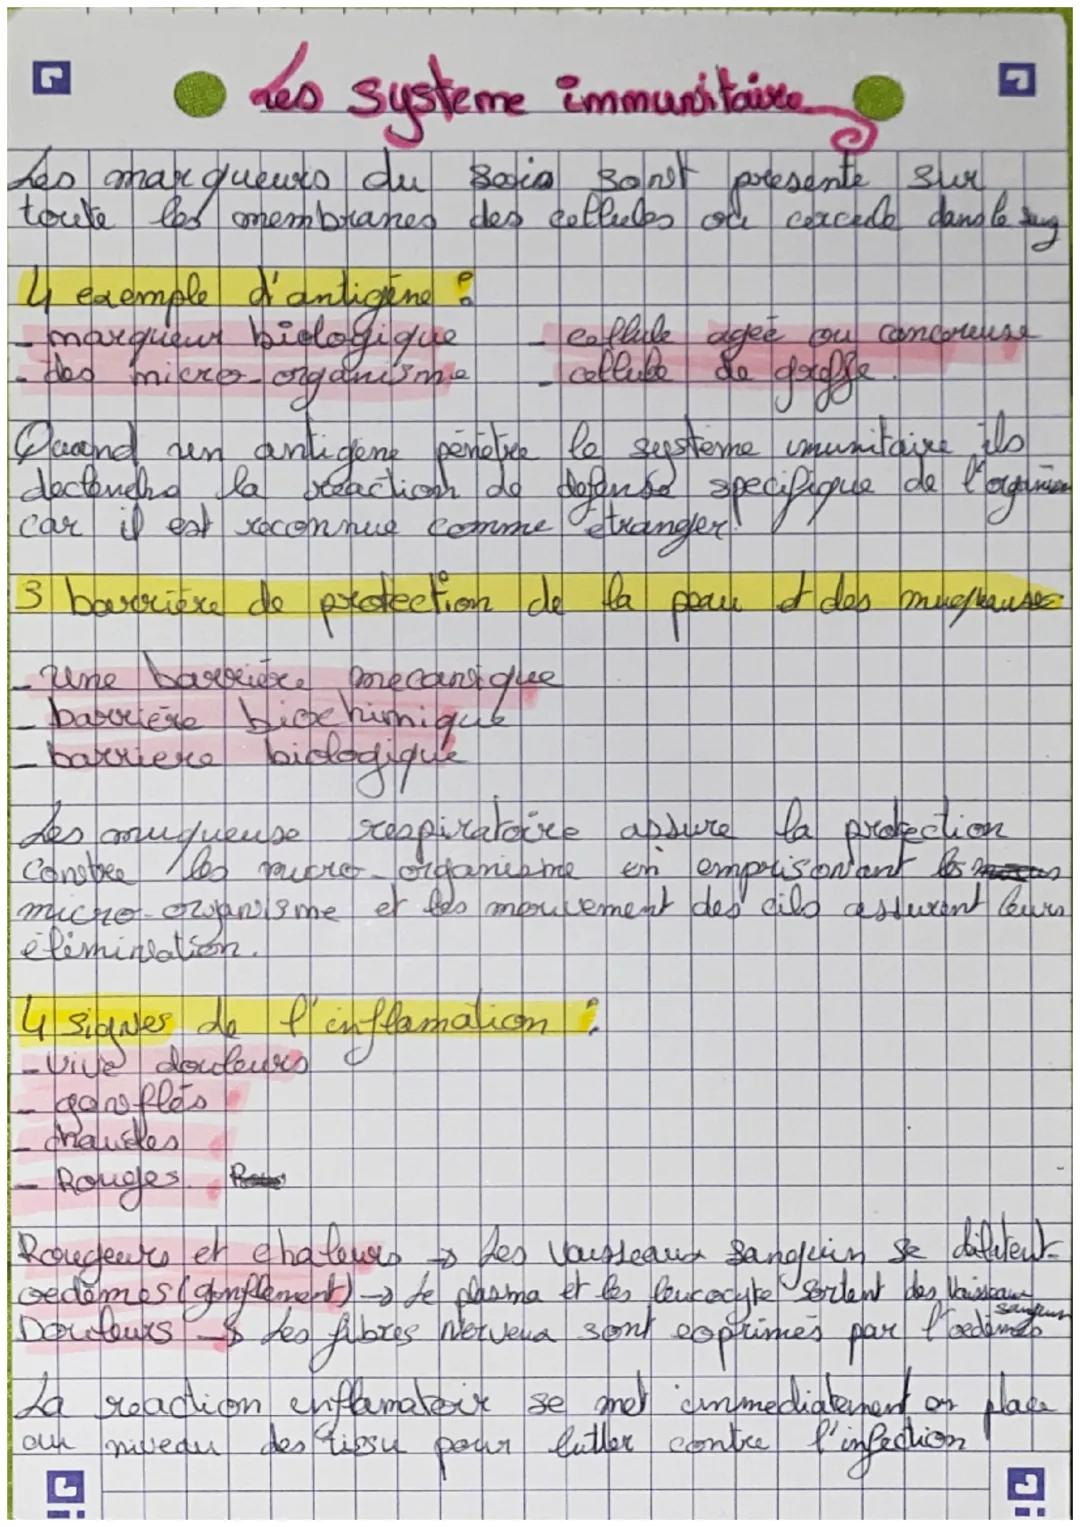 Les systeme immunitaire
Les marqueurs du Sois sont présente sur
toute les membranes des cellules ou cercede dans le sang
4 exemple d'antigéne :
- marqueur biologique
- des micro-organisme
- cellule ageé ou cancereuse
- cellule de greffe.
Quand un antigéne pénétre le systeme imunitaire ils
declendra la réaction de défense spécifique de l'organism
car il est reconnue comme étranger.
3 barrière de protection de la peau et des muqueuses
- Une barrière mecanique
- barrière biochimique
- barriere biologique
Les muqueuse respiratoire assure la protection
Contre les micro-organisme en emprisonant les
micro-organisme et les mouvement des cils assurent leurs
élimination.
4 signes de l'inflamation :
- Vive douleurs
- gonflés
- chaudes
- Rouges.
Rougeurs et chaleurs → Les vaisseaux sanguin se dilatent
oedèmes (gonflement) → Le plasma et les leucocyte sortent des vaisseau sanguin
Douleurs → Les fibres nerveux sont comprimés par l'oedèmes
La reaction inflamatoir se met immediatement en place
au niveau des tissu pour lutter contre l'infection